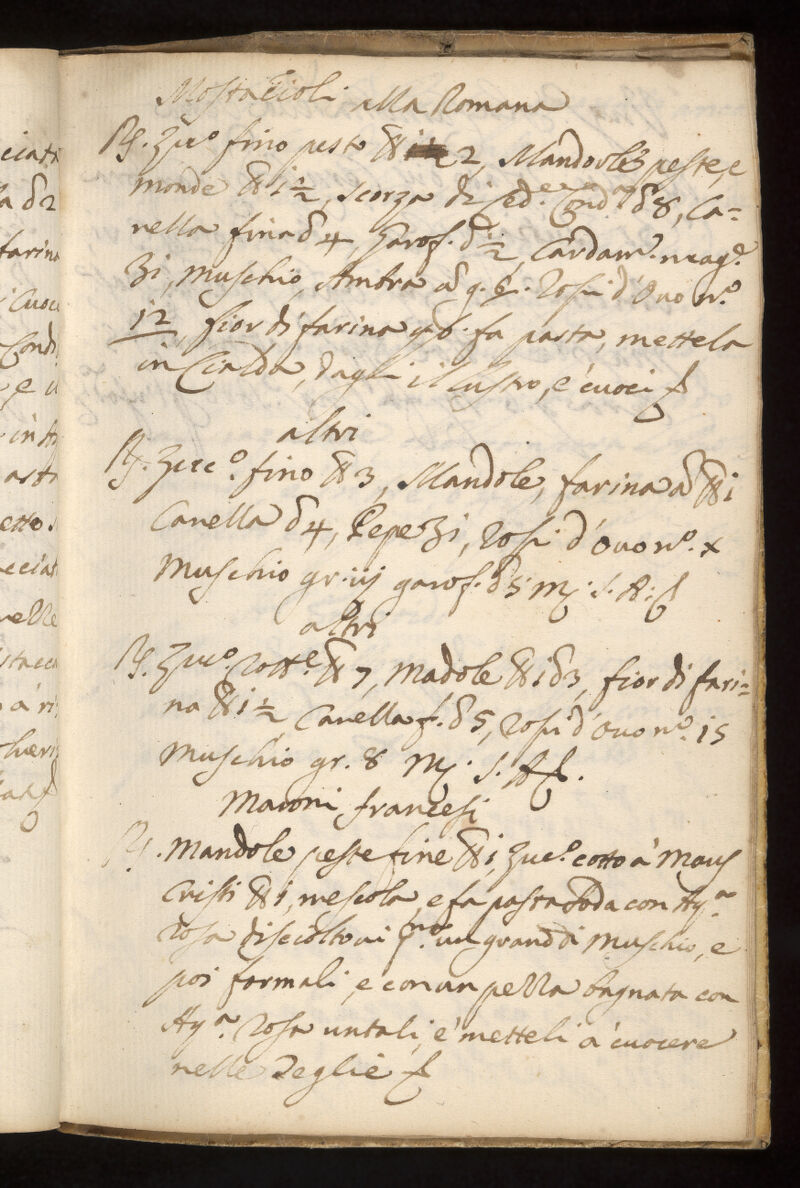 ciat
a ℥2
farina
Cuoc
Condi
e u
in fo
asta
etto
ecciat
nelle
stacca
a ri
Mostaccioli alla Romana
℞. Zucº fino pesto ℔ 2, Mandorle peste, e
monde ℔ i½, scorza di Ced.ᵉ Cond.ᵃ ℥8, Ca=
nella fina ℥4, Garof. ℥½, Cardam.º magᵉ.
ʒi, Muschio, Ambra aᷓ g. 6. Rossi d'Ouo nº.
12, fior di farina q.b. fa pasta, mettela
in Cialda, dagli il lustro, e' cuoci
altri
℞. Zucº. fino ℔ 3, Mandole, farina aᷓ ℔ i
Canella ℥4, Pepe ʒi, Rossi d'Ouo nº. x
Muschio gr. iij garof. ℥5 m. s. A.
altri
℞. Zucº. ℔ 7, Madole ℔ i ℥3, fior di fari=
na ℔ i½, Canella f. ℥5, Rossi d'Ouo nº. 15
Muschio gr. 8 m. s. A.
Maroni francesi
℞. Mandole peste fine ℔ i, Zucº. cotto a' Manus
Cristi ℔ i, mescola, e fa pasta soda con Aqᵃ
rosa discioltoui pº un gran di Muschio, e
poi formali, e con un pezza bagnata con
Aqᵃ. Rosa untali, e' metteli a' cuocere
nelle Teglie